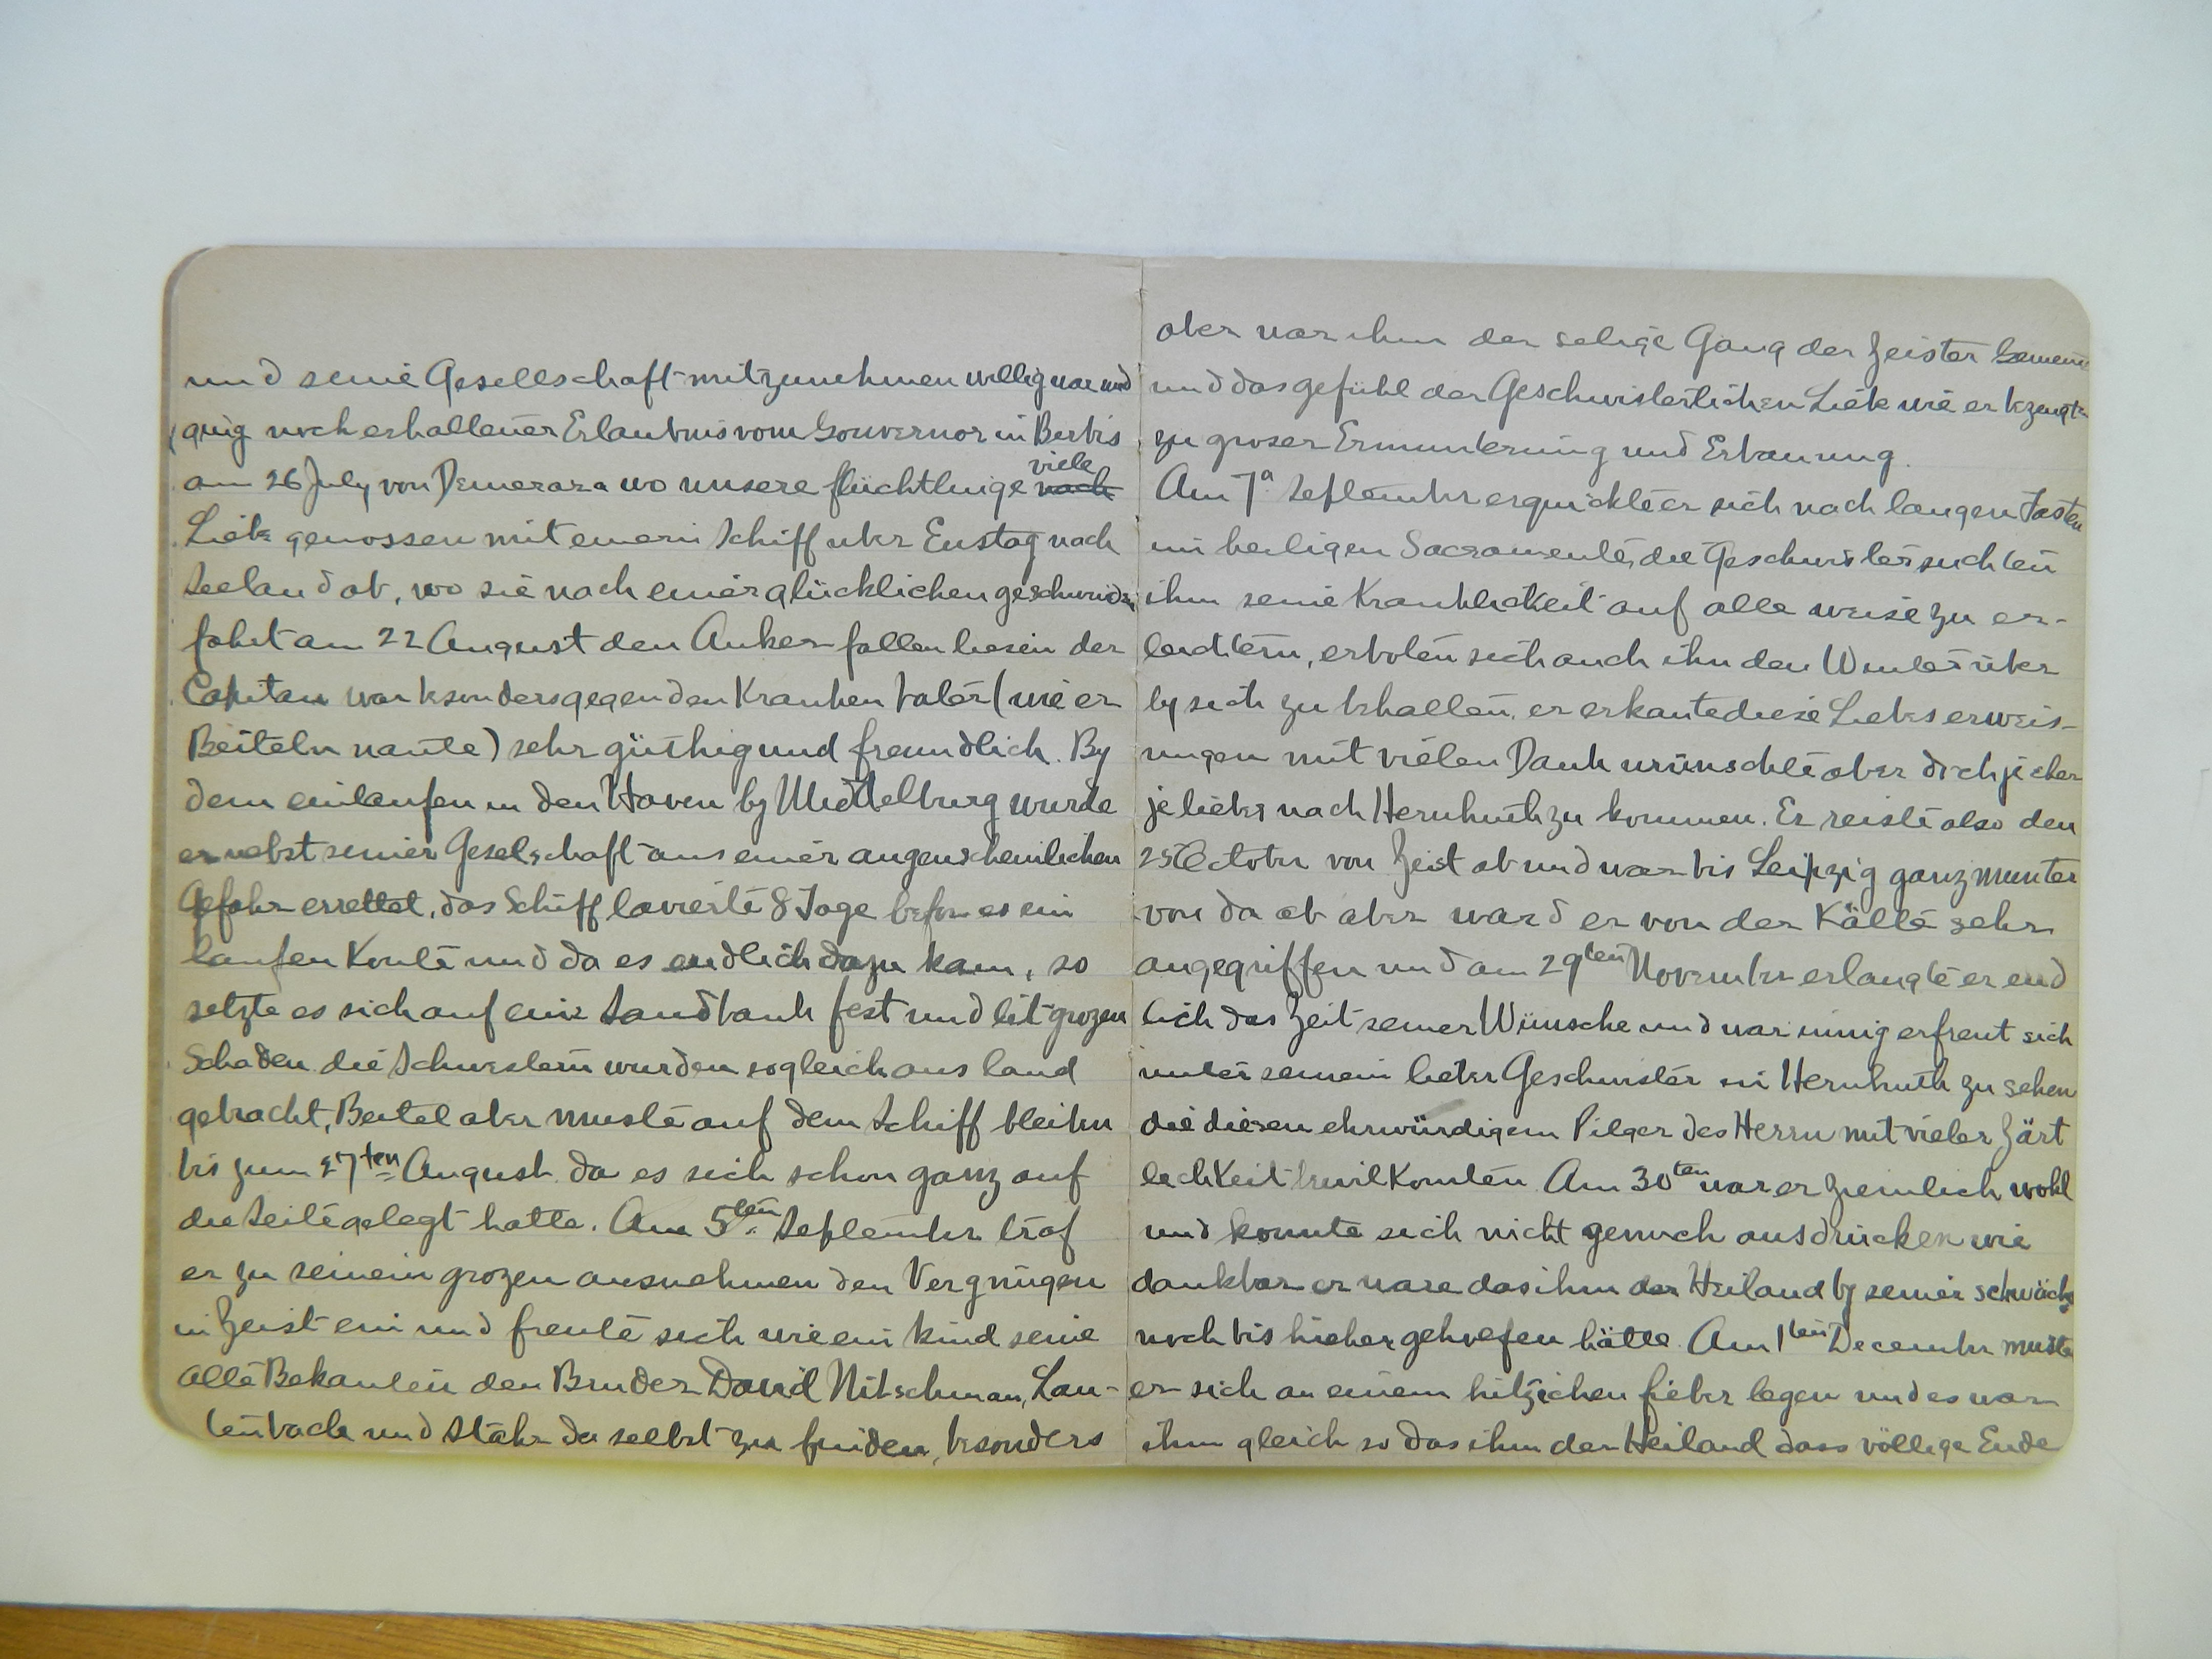 und seine Gesellschaft mitzunehmen willig war und
ging noch erhaltener Erlaubnis vom Gouvernor in Berbis
am 26 July von Demerara wo unsere flüchtlinge viele
Liebe genossen mit einem Schiff uber Eustag nach
Seeland ab, wo sie nach einer glücklichen geschwinden
fahrt am 22 August den Anker fallen liesen der
Capitan war besonders gegen den Kranken Vater (wie er
Beiteln nante) sehr güthig und freundlich. By
dem einlaufen in den Haven by Middelburg wurde
er nebst seiner Geselschaft aus einer augenscheinlichen
Gefahr errettet, das Schiff lavierte 8 Tage befor es ein
laufen Konte und da es endlich dazu kam, so
setzte es sich auf eine Sandbank fest und lit grozen
Schaden die Schwestern wurden sogleich ans land
gebracht, Beitel aber muste auf dem Schiff bleiben
bis zum 27ten August da es sich schon ganz auf
die Seite gelegt hatte. Am 5ten September traf
er zu seinem grozen ausnehmen den Vergnügen
in Zeist ein und freute sich wie ein kind seine
alte Bekanten den Bruder David Nitschman, Lau-
tenbach und Stähr da selbst zu finden, besonders
aber war ihm der selige Gang der Zeister Gemeine
und das gefühl der Geschwisterlichen Liebe wie er bezeugte
zu groser Ermunterung und Erbauung.
Am 7a September erquickte er sich nach langen fasten
im heiligen Sacramente, die Geschwister suchten
ihm seine Kranklichkeit auf alle weise zu er-
leichtern, erboten sich auch ihn den Winter über
by sich zu behalten, er erkante diese Liebes erweis-
ungen mit vielen Dank wünschte aber doch je eher
je lieber nach Hernhuth zu kommen. Er reiste also den
25 October von Zeist ab und war bis Leipzig ganz munter
von da ab aber ward er von der Kälte sehr
angegriffen und am 29ten November erlangte er end
lich das Zeit seiner Wünsche und war innig erfreut sich
unter seinem lieber Geschwister in Hernhuth zu sehen
die diesen ehrwürdigem Pilger des Herrn mit vieler Zärt
lichkeit bewilkomten Am 30ten war er ziemlich wohl
und konnte sich nicht genuch ausdrücken wie
dankbar er ware das ihm der Heiland by seiner schwäche
noch bis hieher geholfen hätte Am 1ten December muste
er sich an einem hitzichen fieber legen und es war
ihm gleich so das ihm der Heiland dass völlige Ende